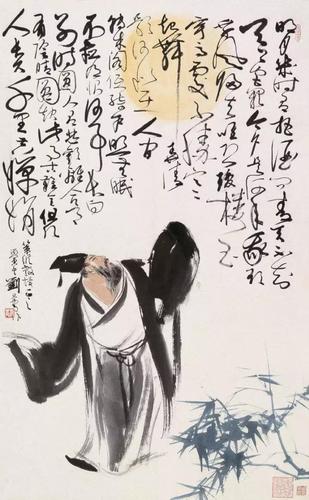 明月幾時有把酒问青天不知
天上宫闕今夕是何年我欲
乘風歸去唯恐瓊樓玉
宇高處不勝寒
起舞弄清
影何似在人间
轉朱阁低绮户照無眠
不應有恨何事長向
别時圆人有悲歡離合月
有陰晴圆缺此事古難全但願
人長久千里共嬋娟
劉旦宅